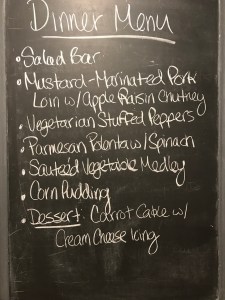 Dinner Menu
• Salad Bar
• Mustard-Marinated Pork
Loin w/ Apple Raisin Chutney
• Vegetarian Stuffed Peppers
• Parmesan Polenta w/ Spinach
• Sauteéd Vegetable Medley
• Corn Pudding
• Dessert: Carrot Cake w/
Cream Cheese Icing